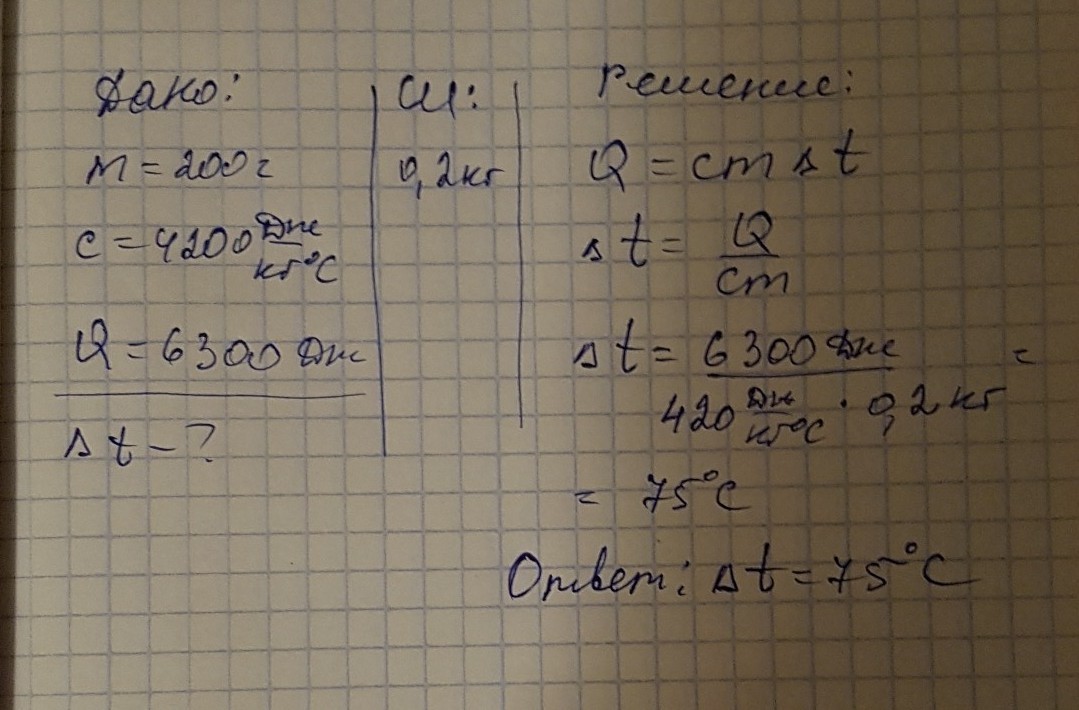 Дано:
m = 200г
c = 4200 Дж/кг°C
Q = 6300 Дж
Δt - ?
СИ:
0,2кг
Решение:
Q = cmΔt
Δt = Q/cm
Δt = 6300 Дж / 420 Дж/кг°C · 0,2 кг =
= 75°C
Ответ: Δt = 75°C